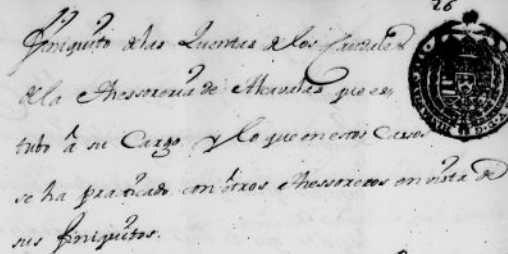 26
finiquito de las Quentas de los Caudales
de la Thessoreria de Alcavalas que es-
tubo â su Cargo y lo que en estos Casos
se ha praticado con otros Thessoreros en vista de
sus finiquitos.